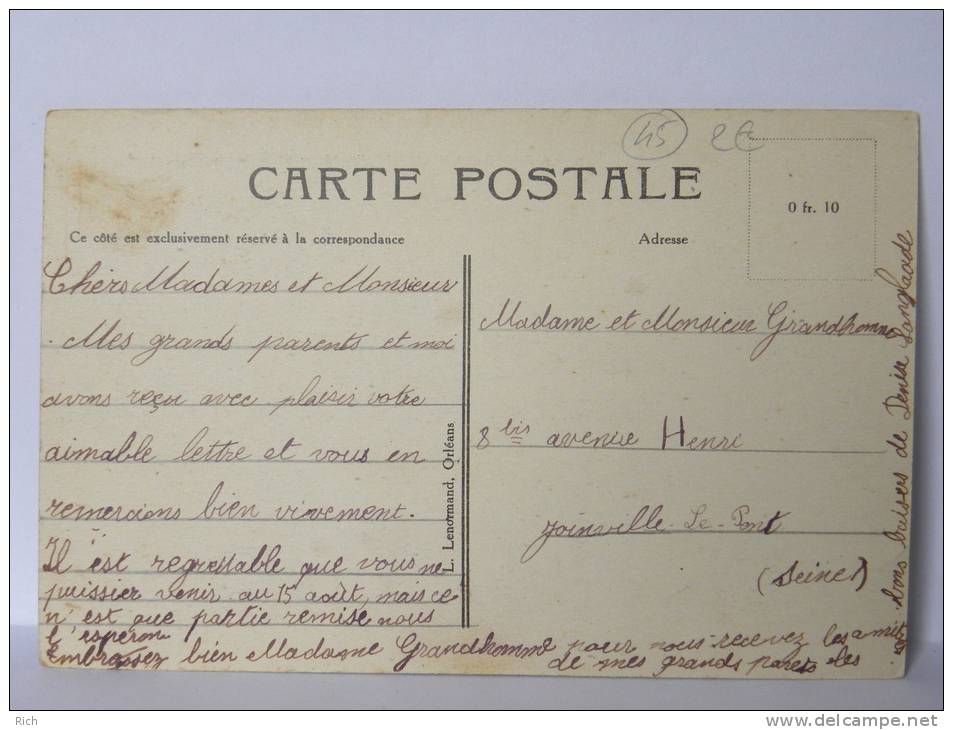 45 2€
CARTE POSTALE
0 fr. 10
Ce côté est exclusivement réservé à la correspondance
Adresse
Chèrs Madames et Monsieur
Mes grands parents et moi
avons reçu avec plaisir votre
aimable lettre et vous en
remercions bien vivement.
Il est regrettable que vous ne
puissier venir au 15 août, mais ce
n'est que partie remise nous
l'esperon
Embrassez bien Madame Grandhomme pour nous recevez les amitiés
de mes grands parets les
bons baisers de Denise Langlaode
L. Lenormand, Orléans
Madame et Monsieur Grandhomme
8 bis avenue Henri
Joinville-Le-Pont
(Seine)
Rich
delcampe.net